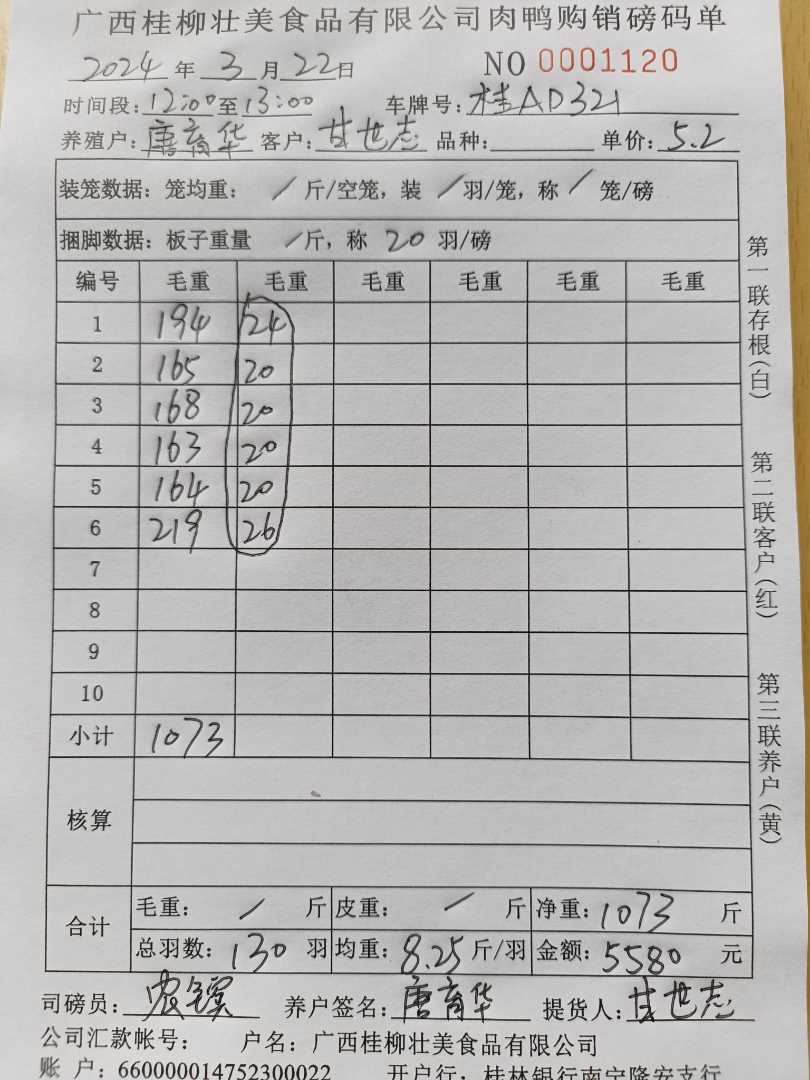 广西桂柳壮美食品有限公司肉鸭购销磅码单
2024 年 3 月 22 日 NO 0001120
时间段: 12:00 至 13:00 车牌号: 桂AD321
养殖户: 唐育华 客户: 甘世志 品种: 单价: 5.2
装笼数据: 笼均重: / 斤/空笼, 装 / 羽/笼, 称 / 笼/磅
捆脚数据: 板子重量 / 斤, 称 20 羽/磅
编号 毛重 毛重 毛重 毛重 毛重 毛重
1 194 24
2 165 20
3 168 20
4 163 20
5 164 20
6 219 26
7
8
9
10
小计 1073
核算
合计 毛重: / 斤 皮重: / 斤 净重: 1073 斤
总羽数: 130 羽 均重: 8.25 斤/羽 金额: 5580 元
司磅员: 农 养户签名: 唐育华 提货人: 甘世志
公司汇款帐号: 户名: 广西桂柳壮美食品有限公司
账 户: 660000014752300022 开户行: 桂林银行南宁隆安支行
第一联存根(白)
第二联客户(红)
第三联养户(黄)